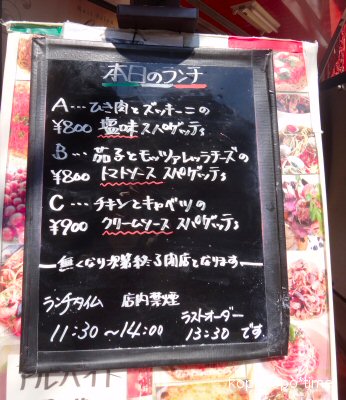 本日のランチ
A…ひき肉とズッキーニの
¥800 塩味スパゲッティ
B…茄子とモッツァレッラチーズの
¥800 トマトソーススパゲッティ
C…チキンとキャベツの
¥900 クリームソーススパゲッティ
無くなり次第終了閉店となります
ランチタイム 店内禁煙
11:30~14:00
ラストオーダー
13:30です
アルバイト